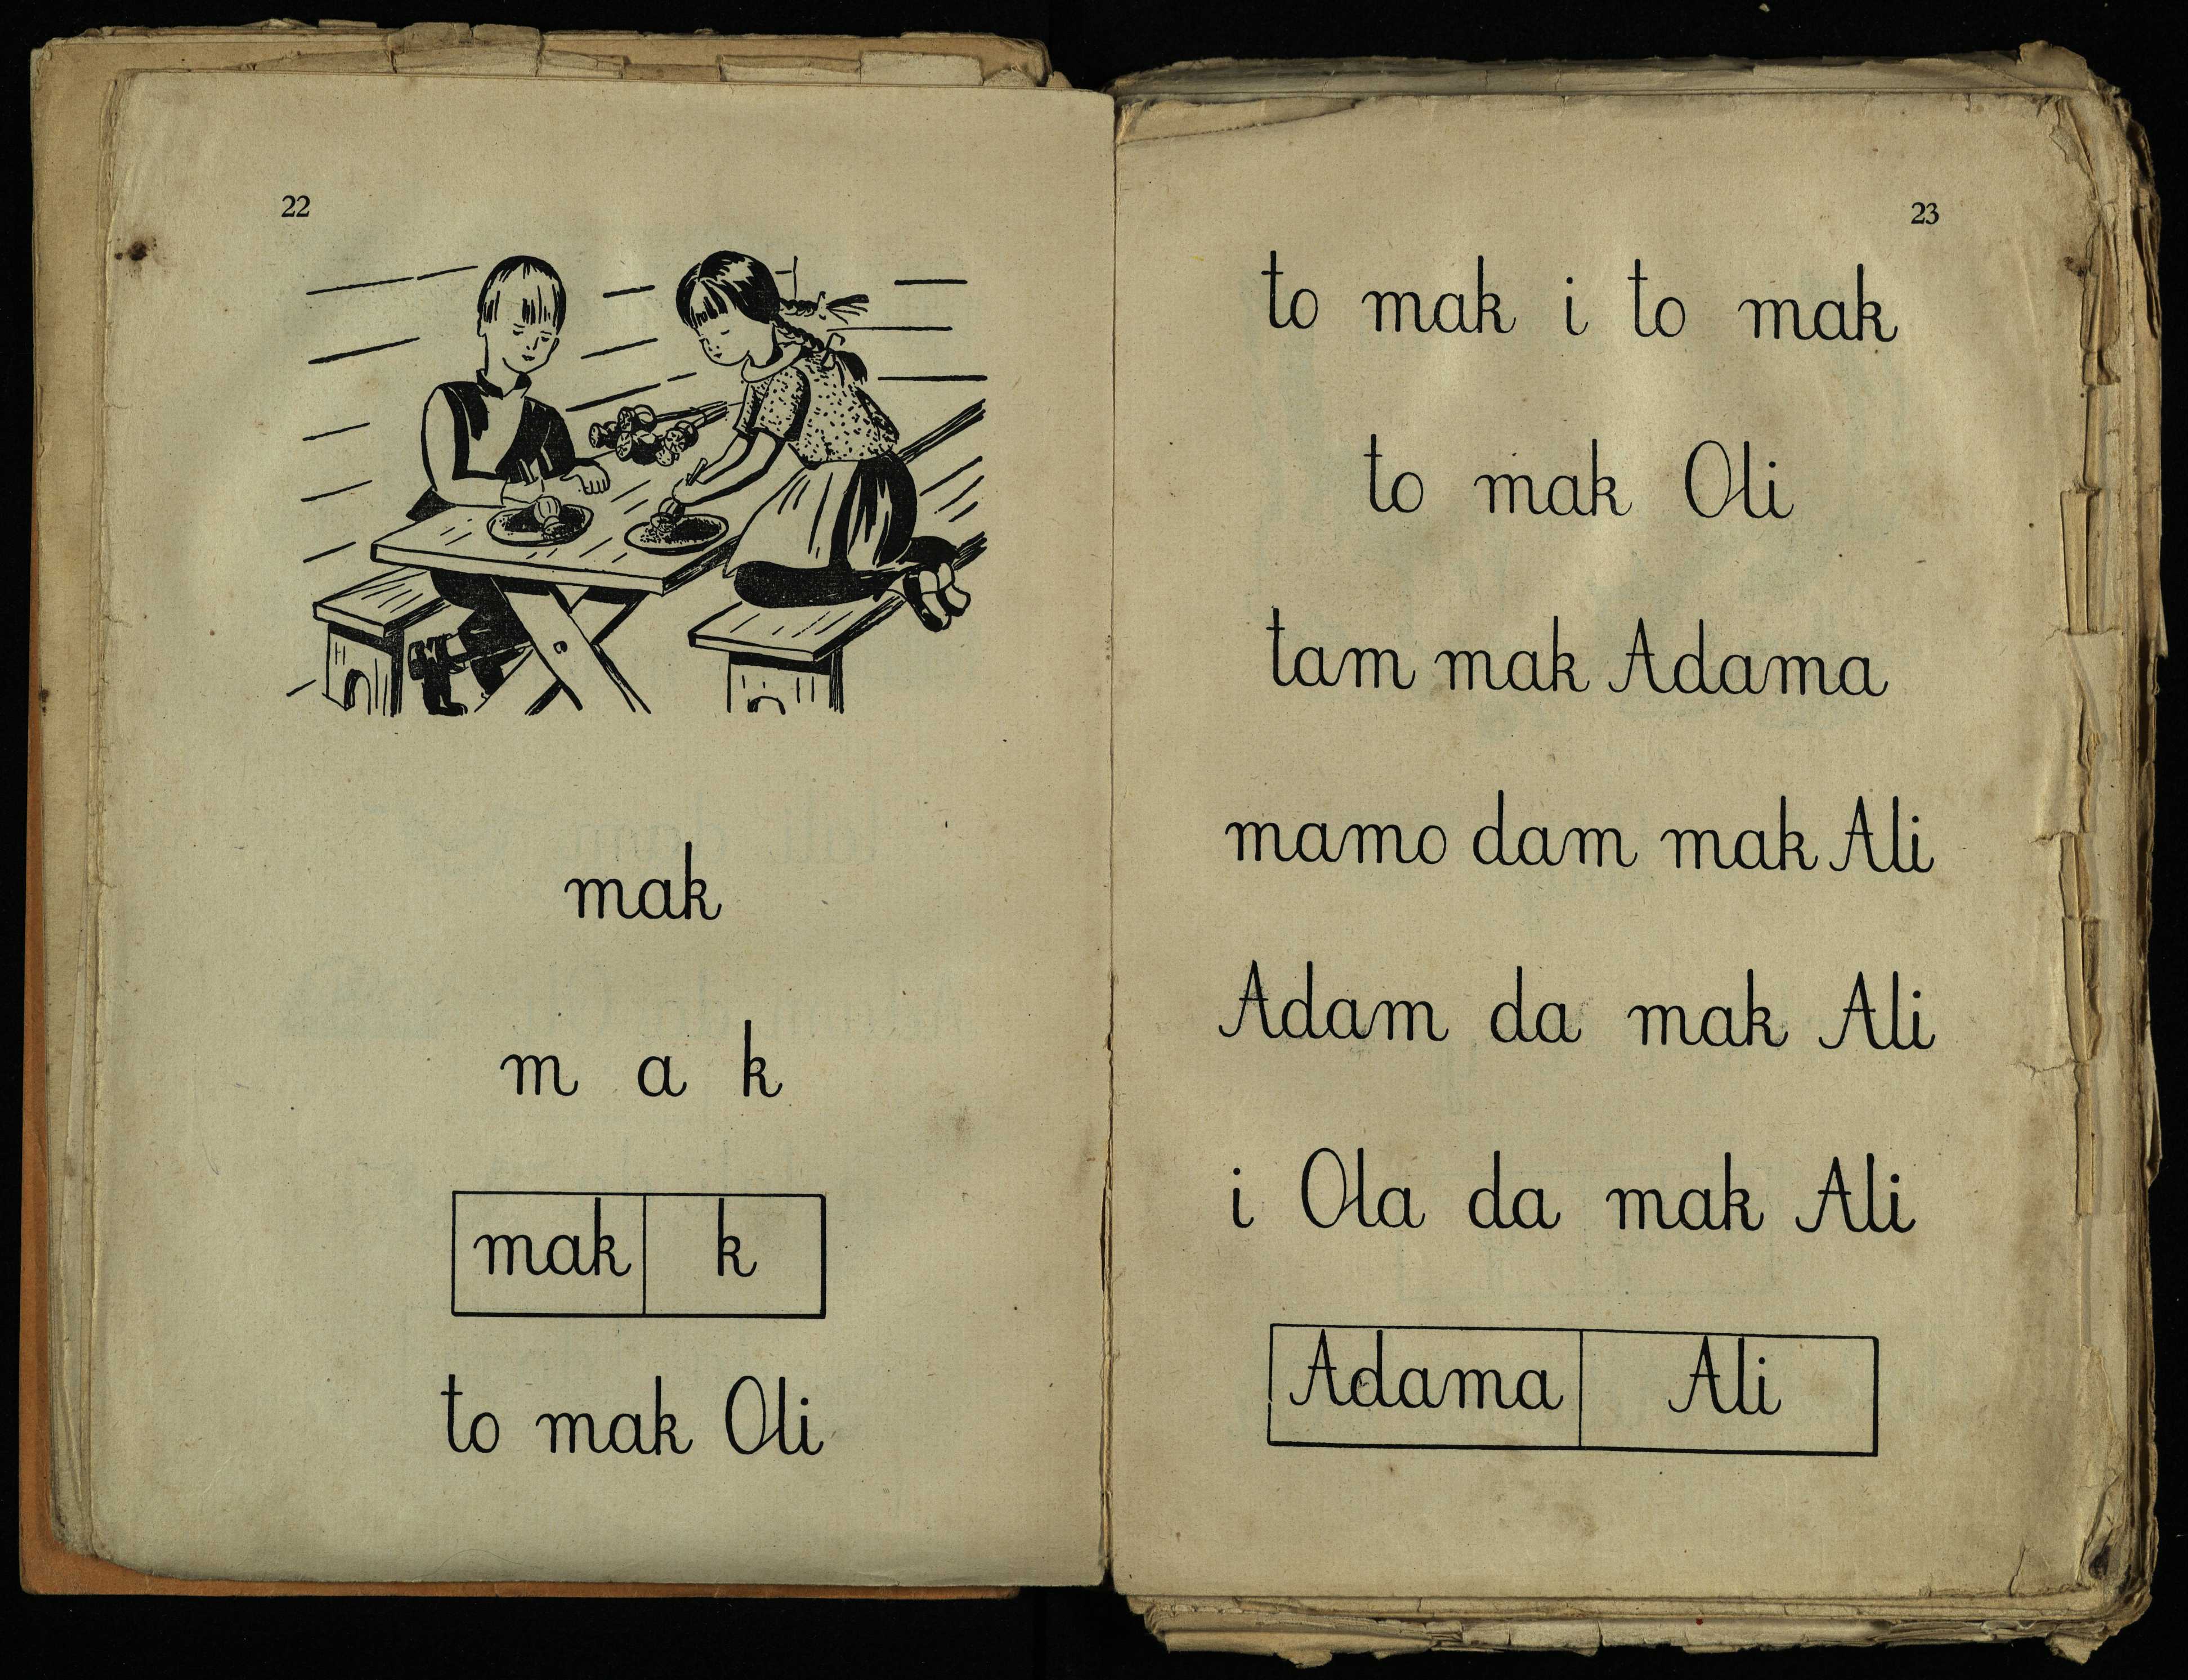 22
mak
m a k
mak k
to mak Oli
23
to mak i to mak
to mak Oli
tam mak Adama
mamo dam mak Ali
Adam da mak Ali
i Ola da mak Ali
Adama Ali